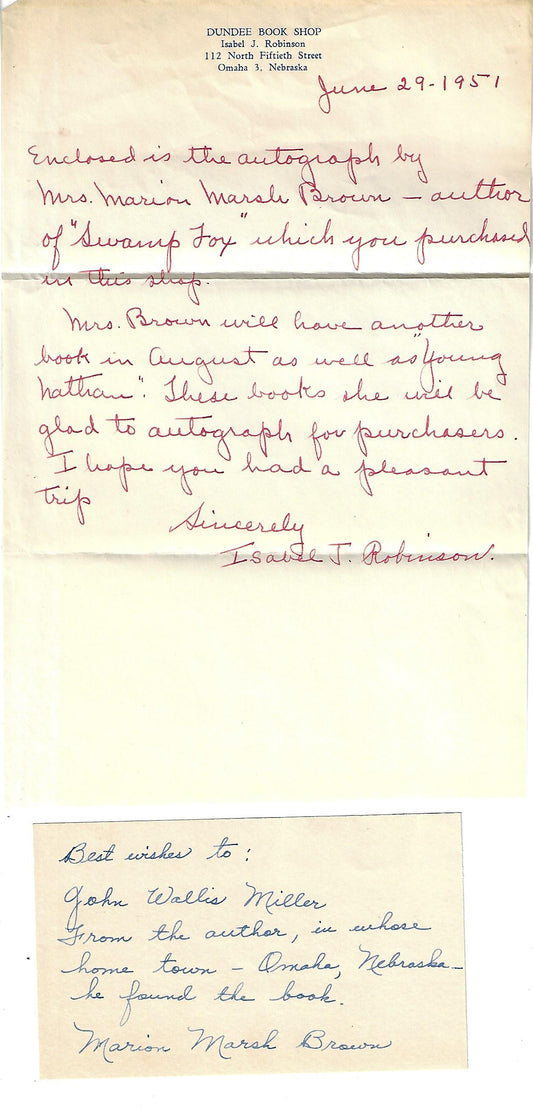 DUNDEE BOOK SHOP
Isabel J. Robinson
112 North Fiftieth Street
Omaha 3, Nebraska
June 29-1951
Enclosed is the autograph by
Mrs. Marion Marsh Brown – author
of "Swamp Fox" which you purchased
in this shop.
Mrs. Brown will have another
book in August as well as "Young
Nathan". These books she will be
glad to autograph for purchasers.
I hope you had a pleasant
trip
Sincerely
Isabel J. Robinson.
Best wishes to:
John Wallis Miller
From the author, in whose
home town – Omaha, Nebraska –
he found the book.
Marion Marsh Brown